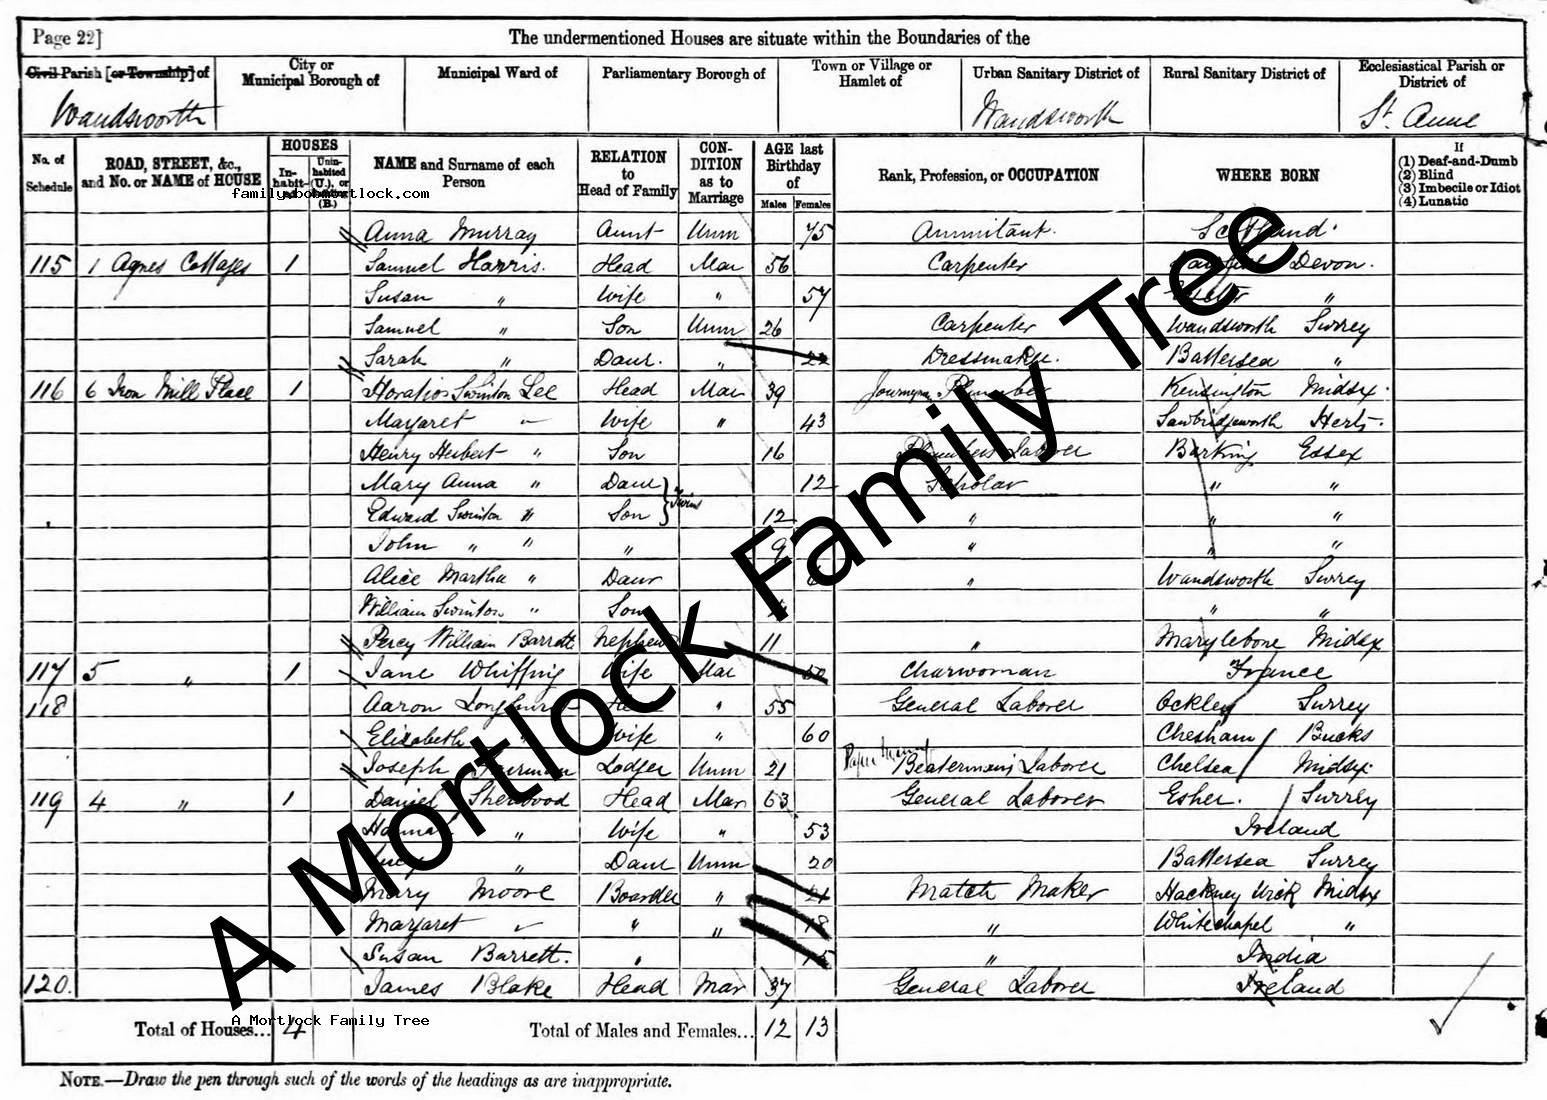 Page 22]
The undermentioned Houses are situate within the Boundaries of the
Civil Parish [or Township] of
City or Municipal Borough of
Municipal Ward of
Parliamentary Borough of
Town or Village or Hamlet of
Urban Sanitary District of
Rural Sanitary District of
Ecclesiastical Parish or District of
Wandsworth Wandsworth St. Anne
No. of Schedule
ROAD, STREET, &c., and No. or NAME of HOUSE
HOUSES
In-habit-
Unin-habited (U.), or (B.)
NAME and Surname of each Person
RELATION to Head of Family
CON-DITION as to Marriage
AGE last Birthday of
Males Females
Rank, Profession, or OCCUPATION
WHERE BORN
If
(1) Deaf-and-Dumb
(2) Blind
(3) Imbecile or Idiot
(4) Lunatic
Anna Murray Aunt Unm 75 Annuitant. Scotland
115 1 Agnes Cottages 1 Samuel Harris. Head Mar 56 Carpenter Devon.
Susan " Wife " 57 "
Samuel " Son Unm 26 Carpenter Wandsworth Surrey
Sarah " Daur. " 22 Dressmaker. Battersea "
116 6 Iron Mill Place 1 Horatio Swinton Lee Head Mar 39 Journeyn Plumber Kensington Midsx.
Margaret " Wife " 43 Sawbridgeworth Herts.
Henry Herbert " Son 16 Plumbers Laborer Barking Essex
Mary Anna " Daur 12 Scholar " "
Edward Swinton " Son } Twins 12 " " "
John " " " 9 " " "
Alice Martha " Daur 6 " Wandsworth Surrey
William Swinton " Son " "
Percy William Barrett Nephew 11 " Marylebone Midsx
117 5 " 1 Jane Whiffing Wife Mar Charwoman France
118 Aaron Head " 55 General Laborer Ockley Surrey
Elizabeth " Wife " 60 Chesham Bucks
Joseph Lodger Unm 21 Laborer Chelsea Midsx.
119 4 " 1 Daniel Sherwood Head Mar 63 General Laborer Esher. Surrey
Hannah " Wife " 53 Ireland
" Daur Unm 20 Battersea Surrey
Mary Moore Boarder " 21 Match Maker Hackney Wick Midsx
Margaret " " " 18 " Whitechapel "
Susan Barrett. " 15 " India
120. James Blake Head Mar 37 General Laborer Ireland
Total of Houses... 4
Total of Males and Females... 12 13
NOTE.—Draw the pen through such of the words of the headings as are inappropriate.
A Mortlock Family Tree
A Mortlock Family Tree